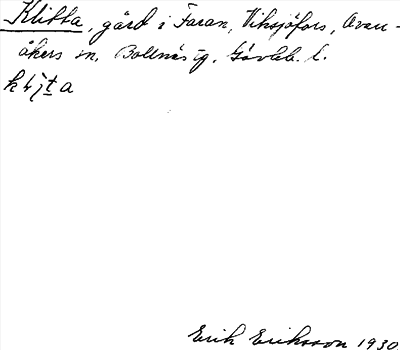 Klitta, gård i Faran, Viksjöfors, Ovan-
åkers sn, Bollnäs tg, Gävleb. l.
Erik Eriksson 1930.